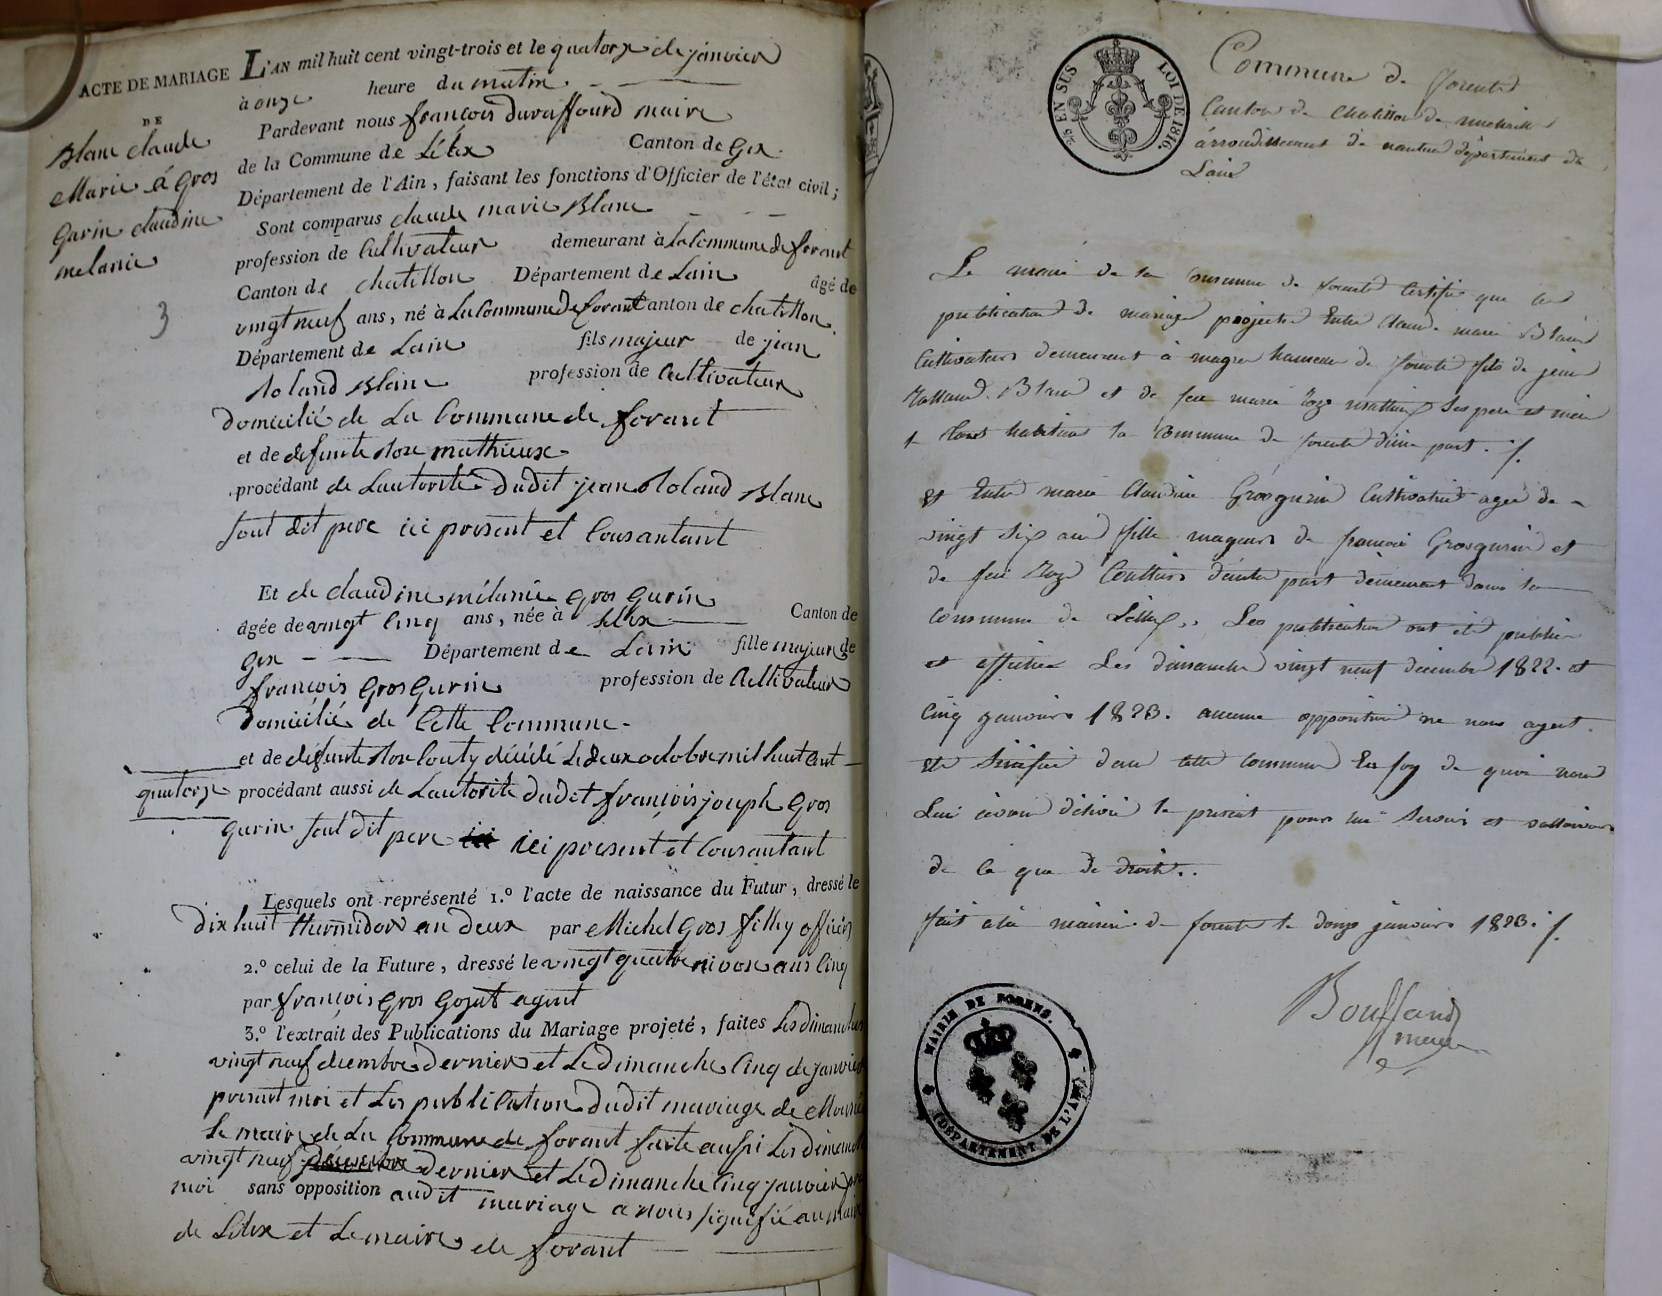 ACTE DE MARIAGE
DE
Blanc claude
Marie à Gros
Gurin claudine
melanie
3
L'AN mil huit cent vingt-trois et le quatorze de janvier
à onze heure du matin
Pardevant nous françois duraffourd maire
de la Commune de Lélex Canton de Gex.
Département de l'Ain, faisant les fonctions d'Officier de l'état civil;
Sont comparus claude marie Blanc
profession de Cultivateur demeurant à La Commune de forent
Canton de chatillon Département de Lain âgé de
vingt neuf ans, né à La Commune de forent Canton de chatillon
Département de Lain fils majeur de jean
Roland Blanc profession de Cultivateur
domicilié de La Commune de forent
et de defunte Rose mathieux
procédant de Lautorité dudit jean Roland Blanc
sont dit pere ici present et Consantant
Et de claudine mélanie gros Gurin
âgée de vingt Cinq ans, née à Lélex Canton de
Gex Département de Lain fille majeur de
françois Gros Gurin profession de Cultivateur
Domicilié de Cette Commune
et de défunte Rose Couty décédé Le deux octobre mil huit Cent
quatorze procédant aussi de Lautorité dudit françois joseph Gros
Gurin sont dit pere ici present et Consantant
Lesquels ont représenté 1.º l'acte de naissance du Futur, dressé le
dix huit thermidor an deux par Michel Gros filly officier
2.º celui de la Future, dressé le vingt quatre nivose ans Cinq
par françois Gros Gojat agent
3.º l'extrait des Publications du Mariage projeté, faites Les dimanches
vingt neuf decembre dernier et Le dimanche Cinq de janvier
présent moi et Les publication dudit mariage de
Le maire de La Commune de forent faite aussi Les dimanche
vingt neuf dernier et Le dimanche Cinq janvier
moi sans opposition audit mariage a nous signifié au maire
de Lélex et Le maire de forent
25 EN SUS
LOI DE 1816.
Commune de forent
Canton de Chatillon de michaille
arrondissement de nantua département de
Lain
Le maire de la Commune de forent Certifie que les
publication de mariage projeté Entre Claude marie Blanc
Cultivateur demeurant à magra hameau de forent fils de jean
Rolland Blanc et de feu marie Roze mathieux Ses pere et mere
habitant la Commune de forent d'une part. /.
et Entre marie Claudine Grosgurin Cultivatrice agée de
vingt Six ans fille majeure de françois Grosgurin et
de feu Roze Couttier d'autre part demeurant dans la
Commune de Lélex, Les publication ont été publier
et afficher Les dimanche vingt neuf décembre 1822. et
Cinq janvier 1823. aucune opposition ne nous ayent
été Sinifiée dans cette Commune En foy de quoi nous
Lui avons délivré le présent pour lui Servir et valloir
de ce que de droit..
fait à la mairie de forent le douze janvier 1823. /.
Bouffand
maire
MAIRIE DE FORENS.
(DÉPARTEMENT DE L'AIN)